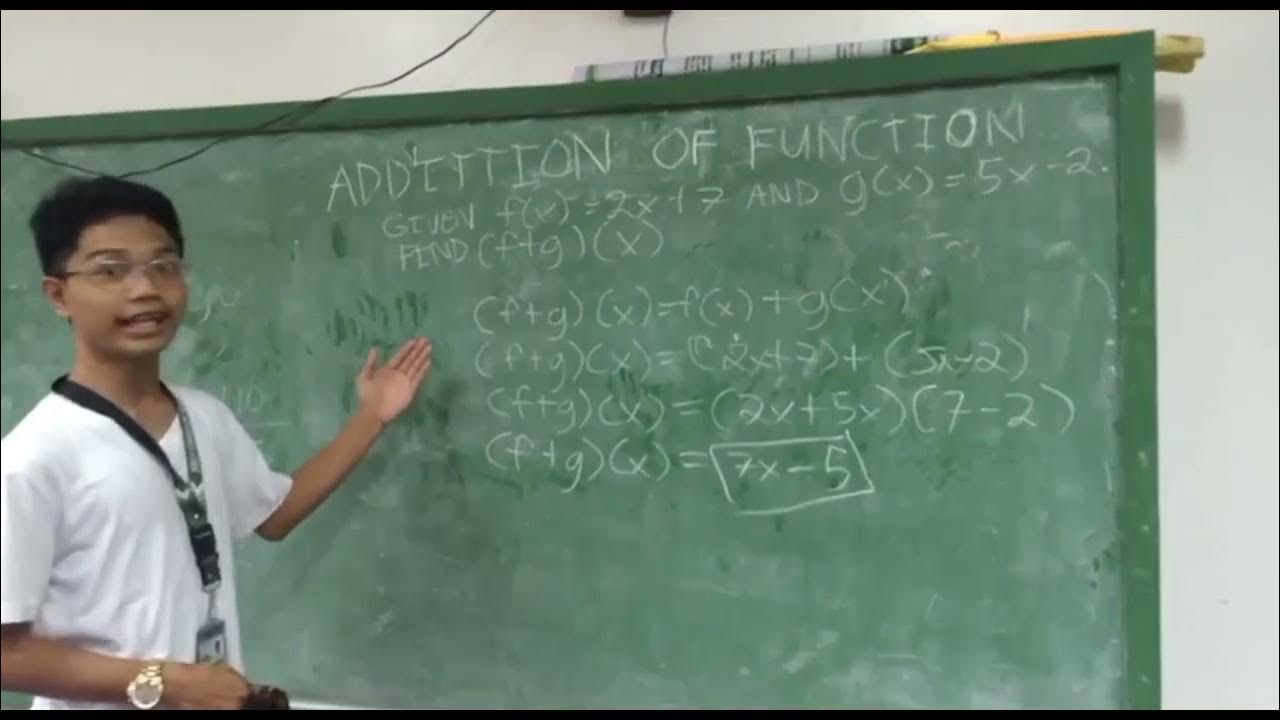 ADDITTION OF FUNCTION
GIVEN f(x) = 2x+7 AND g(x) = 5x-2.
FIND (f+g)(x)
(f+g)(x)=f(x)+g(x)
(f+g)(x)=(2x+7)+(5x-2)
(f+g)(x)=(2x+5x)(7-2)
(f+g)(x)=7x-5